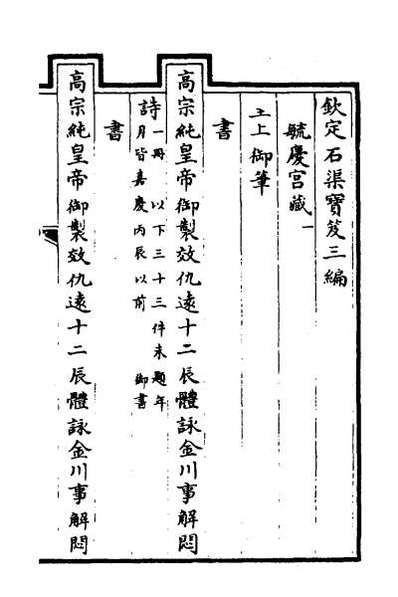 欽定石渠寶笈三編
毓慶宮藏一
上御筆
書
高宗純皇帝御製效仇遠十二辰體詠金川事解悶
詩
一冊 以下三十三件未題年
月皆嘉慶丙辰以前 御書
書
高宗純皇帝御製效仇遠十二辰體詠金川事解悶